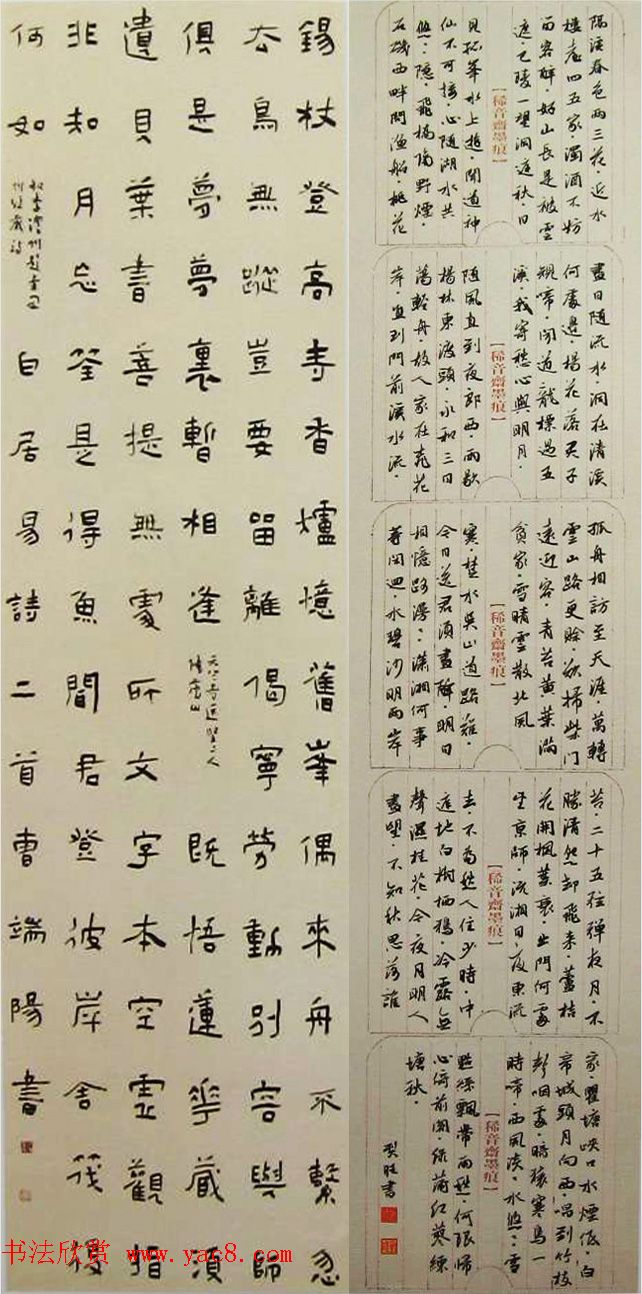 錫杖登高寺香爐憶舊峯偶來舟不繫忽
去鳥無蹤豈要留離偈寧勞動別容與師
俱是夢夢裏暫相逢
天竺寺送堅上人
歸廬山
既悟蓮花藏須
遺貝葉書菩提無處所文字本空虛觀指
非知月忘筌是得魚聞君登彼岸舍筏復
何如
和李澧州題韋開
州經藏詩
白居易詩二首曹端陽書
隔溪春色兩三花·近水
樓臺四五家·濁酒不妨
留客醉·好山長是被雲
遮·巴陵一望洞庭秋·日
【稀音齋墨痕】
見孤峯水上浮·聞道神
仙不可接·心隨湖水共
悠悠·隱隱飛橋隔野煙·
石磯西畔問漁船·桃花
盡日隨流水·洞在清溪
何處邊·楊花落盡子
規啼·聞道龍標過五
溪·我寄愁心與明月·
【稀音齋墨痕】
隨風直到夜郎西·雨歇
楊林東渡頭·永和三日
蕩輕舟·故人家在桃花
岸·直到門前溪水流·
孤舟相訪至天涯·萬轉
雲山路更賒·欲掃柴門
遠迎客·青苔黃葉滿
貧家·雪晴雲散北風
【稀音齋墨痕】
寒·楚水吳山道路難·
今日送君須盡醉·明日
相憶路漫漫·瀟湘何事
等閑迴·水碧沙明兩岸
苔·二十五絃彈夜月·不
勝清怨卻飛來·蘆桔
花開楓葉衰·出門何處
望京師·沅湘日夜東流
【稀音齋墨痕】
去·不為愁人住少時·中
庭地白樹栖鴉·冷露無
聲濕桂花·今夜月明人
盡望·不知秋思落誰
家·瞿塘峽口水煙低·白
帝城頭月向西·唱到竹枝
聲咽處·暗猿寒鳥一
時啼·西風淡淡水悠悠·雪
【稀音齋墨痕】
點絲飄帶雨愁·何限歸
心倚前閣·綠蒲紅蓼練
塘秋·
旺書
书法欣赏 www.yac8.com